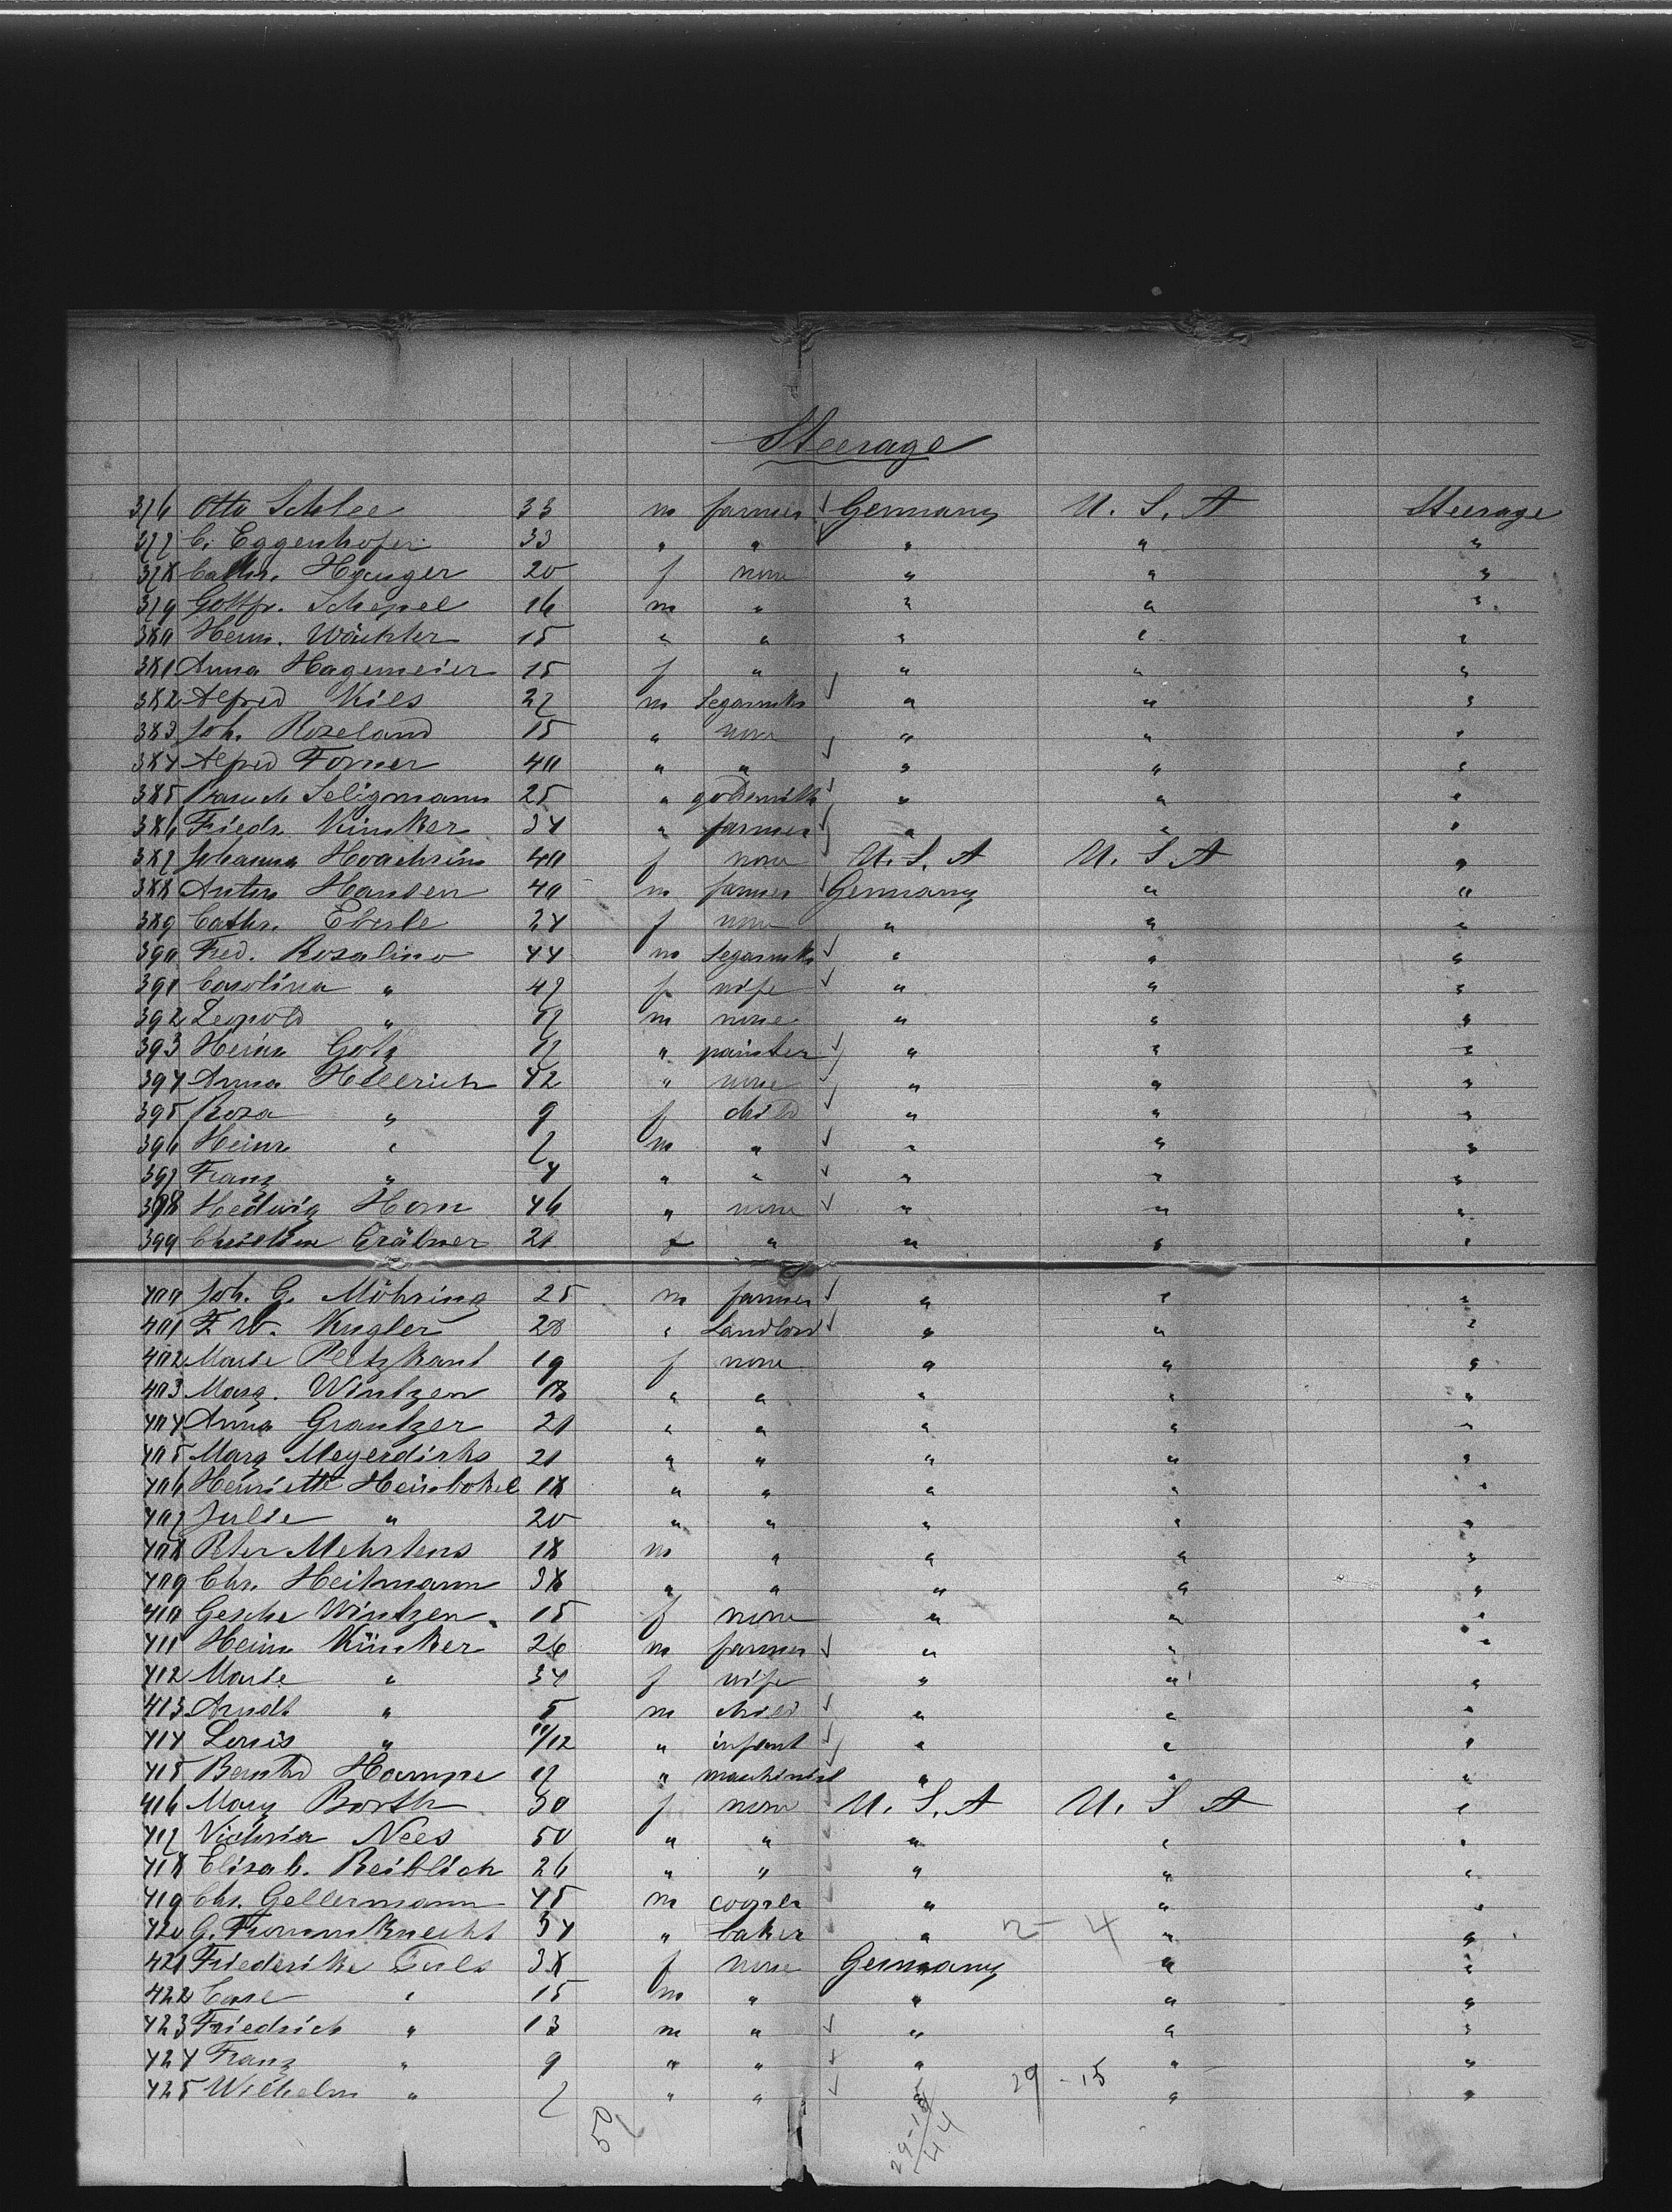 Steerage
376 Otto Schlee 33 m farmer ✓ Germany U. S. A Steerage
377 C. Eggenhofer 33 " " ✓ " " "
378 Cathr. Hauger 20 f none " " "
379 Gottfr. Schepel 16 m " " " "
380 Herm. Wächter 15 " " " " "
381 Anna Hagemeier 15 f " " " "
382 Alfred Kils 27 m Segarmkr ✓ " " "
383 Joh. Roseland 15 " none " " "
384 Alfred Forner 40 " " ✓ " " "
385 Seligmann 25 " goldsmith ✓ " " "
386 Friedr. Kinker 34 " farmer ✓ " " "
387 Johanna 40 f none U. S. A U. S. A "
388 Anton Hansen 40 m farmer ✓ Germany " "
389 Cathr. Eberle 24 f none " " "
390 Fred. Rosalino 44 m Segarmkr ✓ " " "
391 Carolina " 47 f wife ✓ " " "
392 Leopold " 17 m none " " "
393 Heinr Gotz 17 " painter ✓ " " "
394 Anna Hellrich 42 " none ✓ " " "
395 Rosa " 9 f child ✓ " " "
396 Heinr " 7 m " ✓ " " "
397 Franz " 4 " " ✓ " " "
398 Hedwig Horn 46 " none ✓ " " "
399 Christine Gräbner 21 f " " " "
400 Joh. G. Möhring 25 m farmer ✓ " " "
401 F. W. Kugler 28 " Landlord ✓ " " "
402 Marie 19 f none " " "
403 Marg. Wintzen 18 " " " " "
404 Anna Grantzer 21 " " " " "
405 Marg Meyerdirks 21 " " " " "
406 Henriette Heinbokel 18 " " " " "
407 Julie " 20 " " " " "
408 Peter Mehrtens 18 m " " " "
409 Chr. Heitmann 38 " " " " "
410 Gesche Wintzen 15 f none " " "
411 Heinr Kinker 26 m farmer ✓ " " "
412 Marie " 34 f wife " " "
413 Arndt " 5 m child ✓ " " "
414 Louis " 11/12 " infant ✓ " " "
415 Bernhd Hampe 17 " maschinist " " "
416 Mary Barth 30 f none U. S. A U. S A "
417 Victoria Nees 50 " " " " "
418 Elisab. Reiblich 26 " " " " "
419 Chr. Gellermann 45 m cooper " " "
420 G. Frommknecht 34 " baker " 2 - 4 " "
421 Friederike 38 f none Germany " "
422 Carl " 15 m " " " "
423 Friedrich " 13 m " ✓ " " "
424 Franz " 9 " " ✓ " " "
425 Wilhelm " 7 " " ✓ " 29 - 15 " "
50
29-15
44